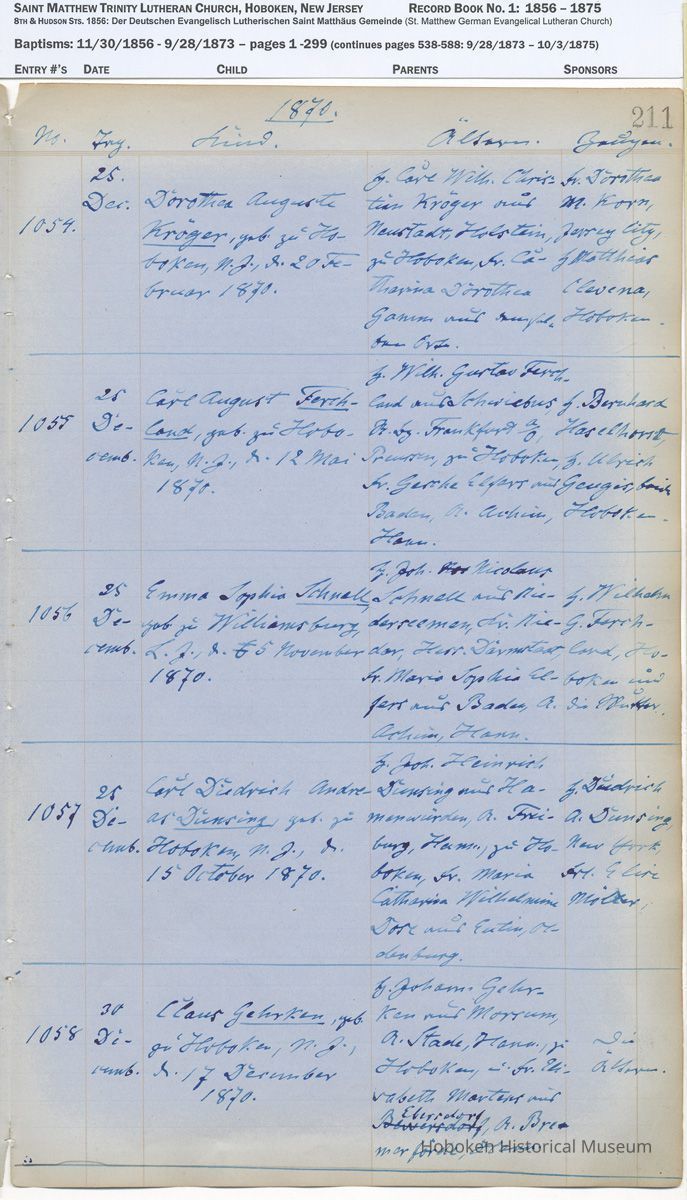 SAINT MATTHEW TRINITY LUTHERAN CHURCH, HOBOKEN, NEW JERSEY RECORD BOOK NO. 1: 1856 – 1875
8TH & HUDSON STS. 1856: Der Deutschen Evangelisch Lutherischen Saint Matthäus Gemeinde (St. Matthew German Evangelical Lutheran Church)
Baptisms: 11/30/1856 - 9/28/1873 – pages 1 -299 (continues pages 538-588: 9/28/1873 – 10/3/1875)
ENTRY #'S DATE CHILD PARENTS SPONSORS
1870.
211
No. Tag. Kind. Ältern. Zeugen.
1054.
25.
Dec.
Dorothea Auguste
Kröger, geb. zu Ho-
boken, N. J., d. 20 Fe-
bruar 1870.
H. Carl Wilh. Chris-
tian Kröger aus
Neustadt, Holstein,
zu Hoboken, Fr. Ca-
tharina Dorothea
Gamm aus demsel-
ben Orte.
Fr. Dorothea
M. Korn,
Jersey City,
H. Matthias
Clevena,
Hoboken.
1055
25
De-
cemb.
Carl August Ferch-
land, geb. zu Hobo-
ken, N. J., d. 12 Mai
1870.
H. Wilh. Gustav Ferch-
land aus Schwiebus
R. Bz. Frankford a/O,
Preussen, zu Hoboken,
Fr. Gesche Elfers aus
Baden, A. Achim,
Hann.
H. Bernhard
Haselhorst,
H. Ulrich
Gengis, beide
Hoboken.
1056
25
De-
cemb.
Emma Sophia Schnell,
geb. zu Williamsburg,
L. J., d. 5 November
1870.
H. Joh. Nicolaus
Schnell aus Nie-
derseemen, Kr. Nid-
dar, Hess. Darmstadt,
Fr. Maria Sophia El-
fers aus Baden, A.
Achim, Hann.
H. Wilhelm
G. Ferch-
land, Ho-
boken und
die Mutter.
1057
25
De-
cemb.
Carl Diedrich Andre-
as Dunsing, geb. zu
Hoboken, N. J., d.
15 October 1870.
H. Joh. Heinrich
Dunsing aus Ha-
menwürden, A. Frei-
burg, Hann., zu Ho-
boken, Fr. Maria
Catharina Wilhelmine
Dose aus Eutin, Ol-
denburg.
H. Diedrich
A. Dunsing,
New York
Frl. Elise
Möller,
1058
30
De-
cemb.
Claus Gehrken, geb.
zu Hoboken, N. J.,
d. 17 December
1870.
H. Johann Gehr-
ken aus Morsum,
A. Stade, Hann., zu
Hoboken, u. Fr. Eli-
sabeth Martens aus
Ebersdorf, A. Bre-
mer
Die
Ältern.
Hoboken Historical Museum